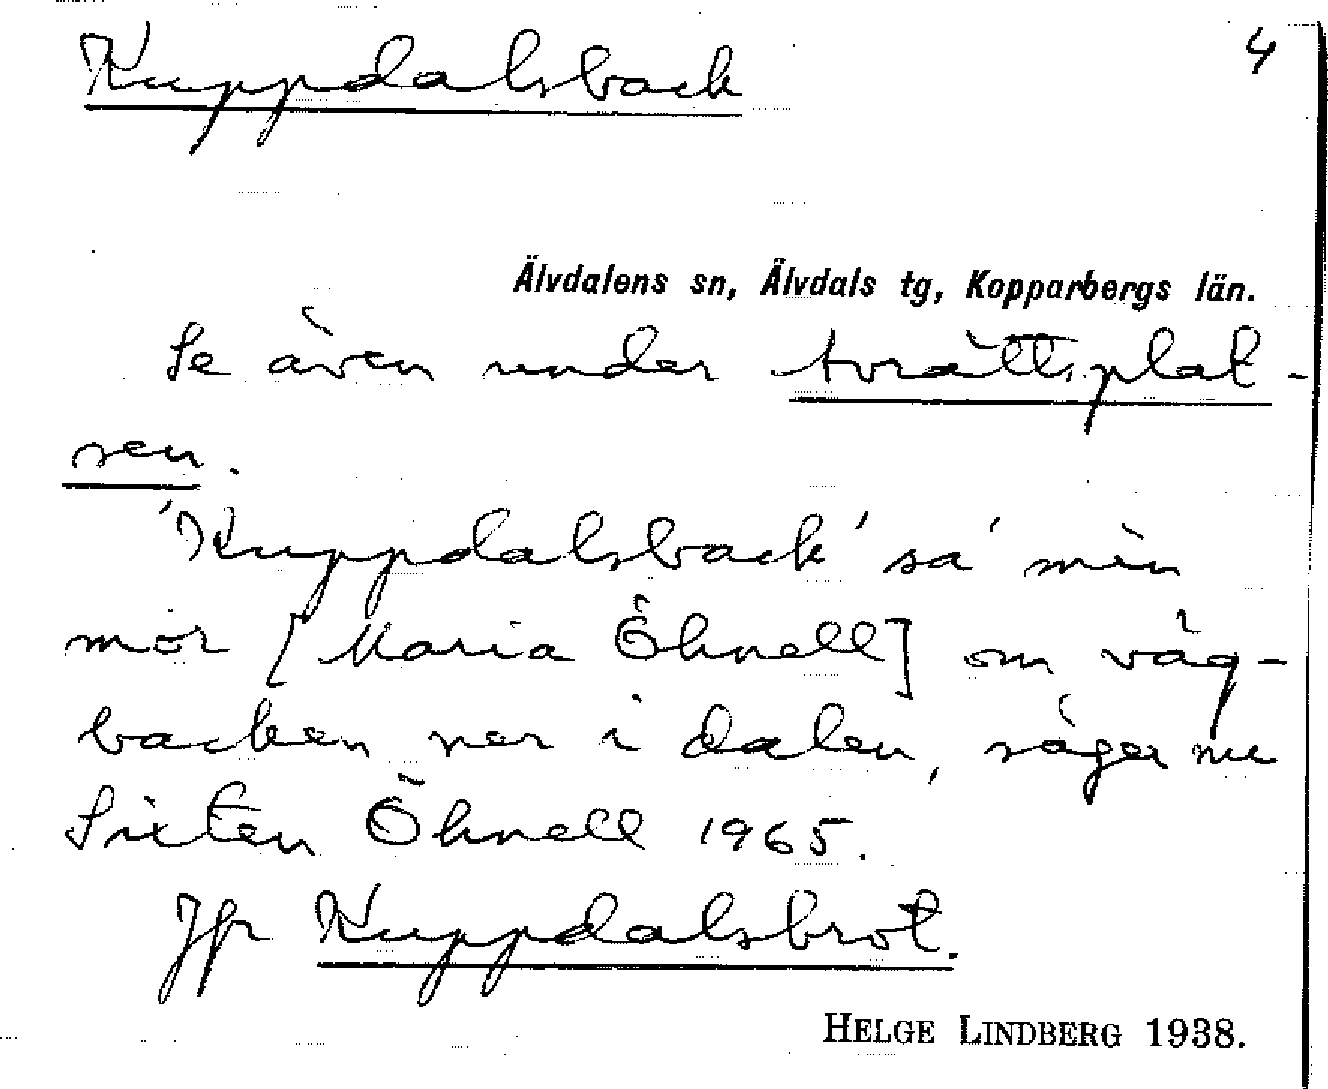 Kuppdalsback 4
Älvdalens sn, Älvdals tg, Kopparbergs län.
Se även under Avrättsplat-
sen.
'Kuppdalsback' sa' min
mor [Maria Öhnell] om väg-
backen ner i dalen, säger nu
Sixten Öhnell 1965.
Jfr Kuppdalsbrot.
HELGE LINDBERG 1938.